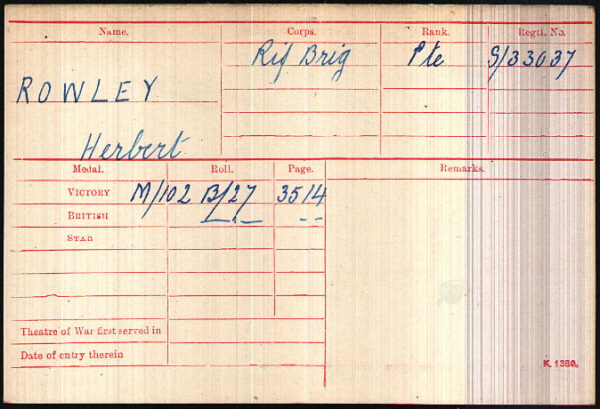 Name. Corps. Rank. Regtl. No.
ROWLEY Rif Brig Pte S/33037
Herbert
Medal. Roll. Page. Remarks.
VICTORY M/102 B/27 3514
BRITISH — . — - -
STAR
Theatre of War first served in
Date of entry therein
K. 1380.